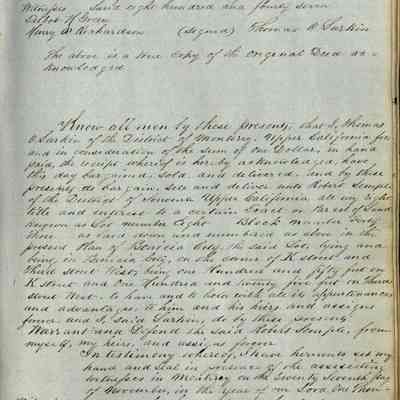 Witnesses Said eight hundred and forty seven
Talbot H Green
Henry D Richardson (signed) Thomas O. Larkin
The above is a true Copy of the Original Deed ac-
knowledged
Know all men by these presents, that I, Thomas
O Larkin of the District of Monterey, Upper California for
and in consideration of the sum of One Dollar, in hand
paid, the receipt whereof is hereby acknowledged, have
this day bargained, sold, and delivered, and by these
presents do bargain, sell and deliver unto Robert Semple
of the District of Sonoma Upper California all my right
title and interest to a certain Parcel of Land
known as Lot number Eight Block number Forty
three as laid down and numbered as above in the
present Plan of Benicia City, the said Lot, lying and
being in Benicia City, on the corner of K street and
third street West, being one Hundred and fifty feet on
K street and One Hundred and twenty five feet on third
street West. to have and to hold with all its appurtenances
and advantages, to him and his heirs, and assigns
forever and I, said Larkin, do by these presents
Warrant and Defend the said Robert Semple, from
myself, my heirs, and assigns forever
In testimony whereof, I have hereunto set my
hand and seal in presence of the assisting
witnesses in Monterey on the Twenty Seventh day
of November, in the year of our Lord One Thou-